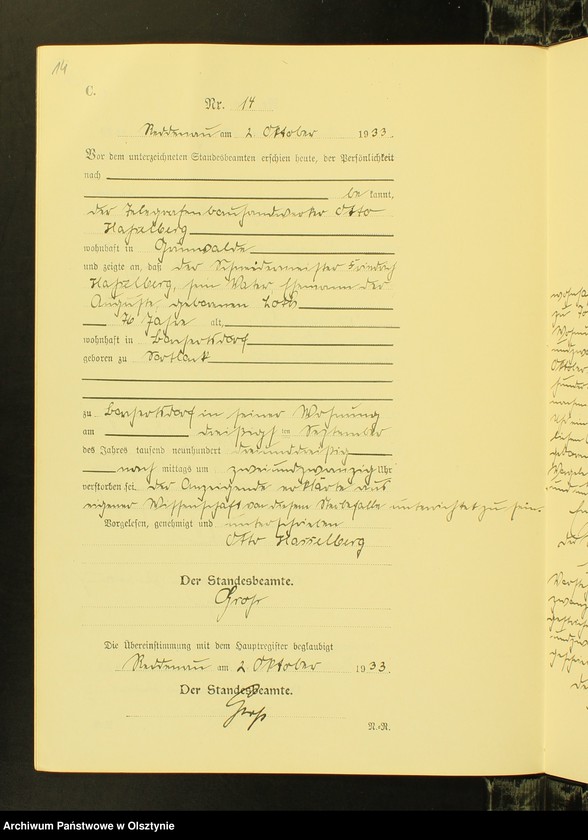 14
C.
Nr. 14
Reddenau am 2. Oktober 1933.
Vor dem unterzeichneten Standesbeamten erschien heute, der Persönlichkeit
nach
be kannt,
der Telegrafenbauhandwerker Otto
Hasselberg
wohnhaft in Grünwalde
und zeigte an, daß der Schneidermeister Friedrich
Hasselberg, sein Vater Ehemann der
Auguste, geborenen
76 Jahre alt,
wohnhaft in Borchertsdorf
geboren zu Sortlack
zu Borchertsdorf in seiner Wohnung
am dreißigsten September
des Jahres tausend neunhundert dreiunddreißig
nach mittags um zweiundzwanzig Uhr
verstorben sei. Der Anzeigende erklärte aus
eigener Wissenschaft von diesem Sterbefalle unterrichtet zu sein.
Vorgelesen, genehmigt und unterschrieben
Otto Hasselberg
Der Standesbeamte.
Die Übereinstimmung mit dem Hauptregister beglaubigt
Reddenau am 2. Oktober 1933.
Der Standesbeamte.
N.-R.
Archiwum Państwowe w Olsztynie